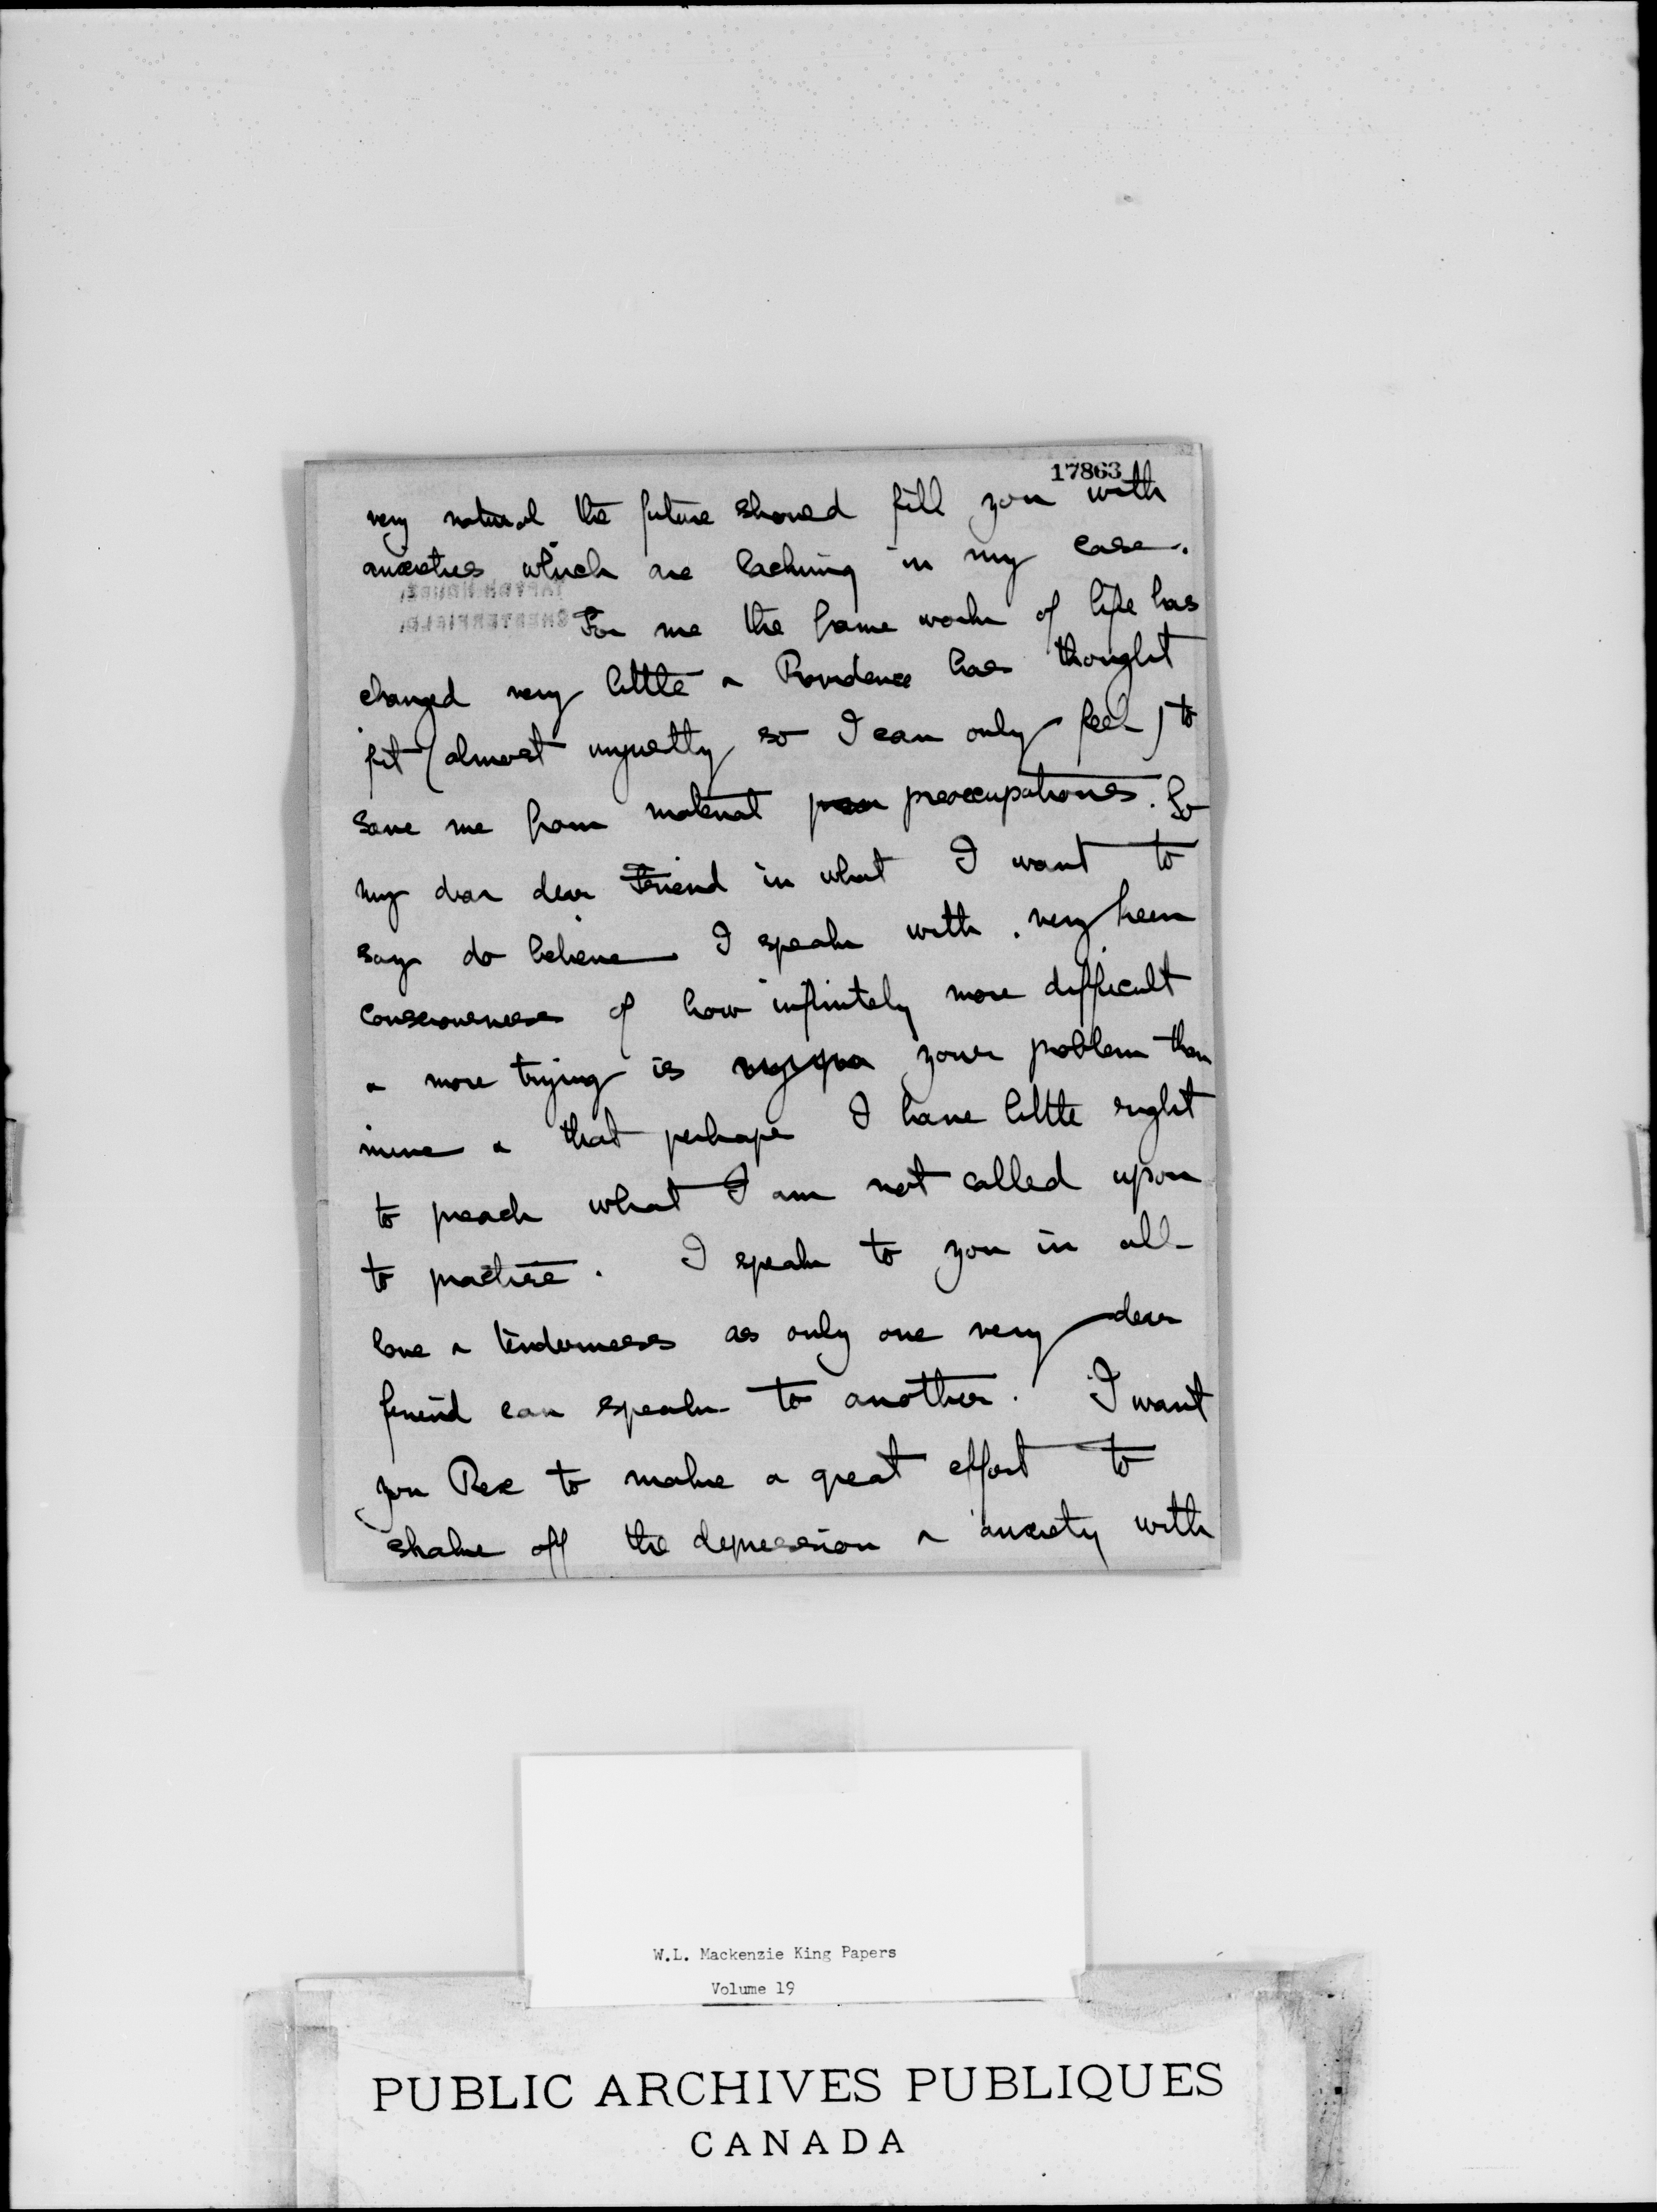 17863
very natural the future should fill you with
anxieties which are lacking in my case.
TAPTON HOUSE,
CHESTERFIELD.
For me the frame work of life has
changed very little & Providence has thought
fit (almost unjustly so I can only feel) to
save me from material preoccupations. So
my dear dear Friend in what I want to
say do believe I speak with very keen
consciousness of how infinitely more difficult
& more trying is your problem than
mine & that perhaps I have little right
to preach what I am not called upon
to practise. I speak to you in all
love & tenderness as only one very dear
friend can speak to another. I want
you Rex to make a great effort to
shake off the depression & anxiety with
W.L. Mackenzie King Papers
Volume 19
PUBLIC ARCHIVES PUBLIQUES
CANADA